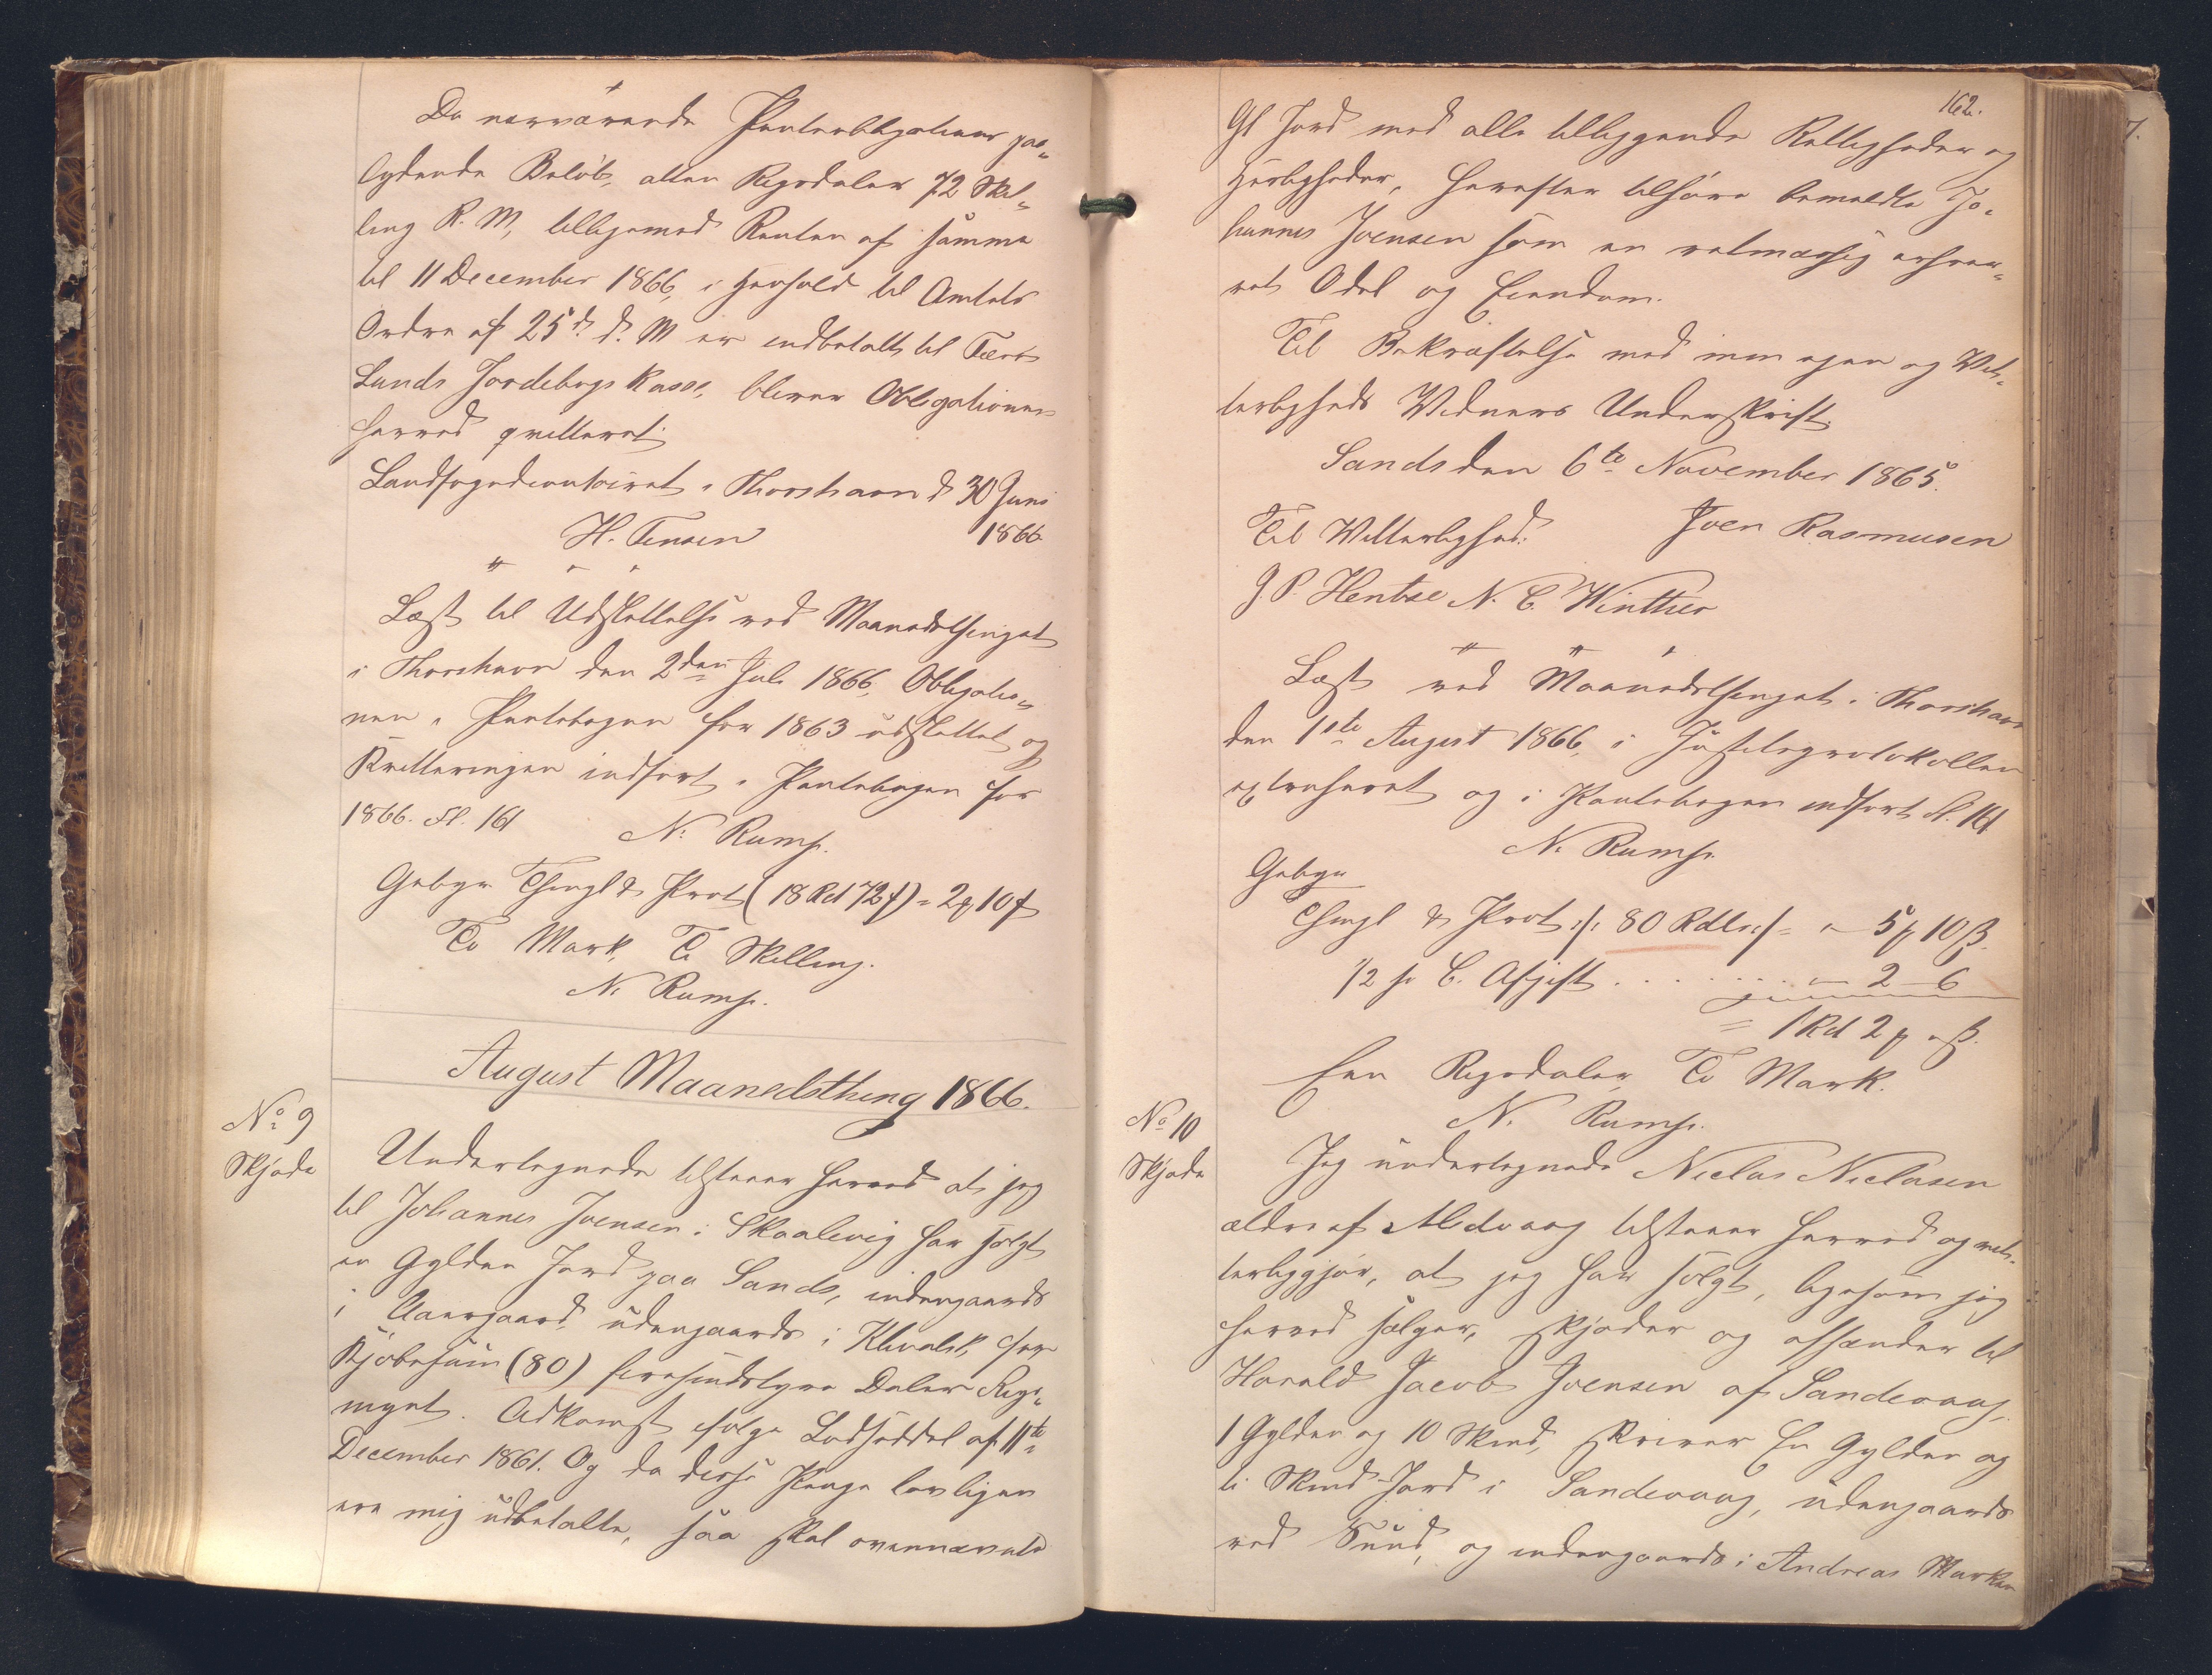 Da nærværende Panteobligations paa„
lydende Beløb, atten Rigsdaler 72 Skil„
ling R. M, tilligemed Renten af samme
til 11 December 1866, i Henhold til Amtets
Ordre af 25 d. d. M er indbetalt til Færø
Lands Jordebogs Kasse, bliver Obligationen
herved qvitteret.
Landfogedcontoiret i Thorshavn d 30 Juni
1866
H. Tensen
Læst til Udslettelse ved Maanedsthinget
i Thorshavn den 2den Juli 1866, Obligatio„
nen i Pantebogen for 1863 udslettet og
Kvitteringen indført i Pantebogen for
1866. Fl. 161
N. Rump.
Gebyr Thingl & Prot (18 Rd 72 ß) = 2 ₰ 10 ß
To Mark, Ti Skilling.
N. Rump.
August Maanedsthing 1866.
No 9
Skjøde
Undertegnede tilstaaer herved at jeg
til Johannes Joensen i Skaalevig har solgt
en Gylden Jord paa Sands, indengaards
i Aaregaard, udengaards i Klivalsk, for
Kjøbesum (80) firesindstyve Daler Rigs„
mynt. Adkomst følge Lodseddel af 11te
December 1861. Og da disse Penge lovligen
ere mig udbetalte, saa skal ovennævnte
162.
Gl Jord med alle tilliggende Rettigheder og
Herligheder, herefter tilhøre bemeldte Jo„
hannes Joensen som en retmæssig erhver„
vet Odel og Eiendom.
Til Bekræftelse med min egen og Vit„
terligheds Vidners Underskrift.
Sands den 6te November 1865.
Til Vitterlighed: Joen Rasmusen
J. P. Hentze N. C. Winther
Læst ved Maanedsthinget i Thorshavn
den 1ste August 1866, i Justitsprotokollen
extraheret og i Pantebogen indført Fl. 161
N. Rump.
Gebyr
Thingl & Prot :/: 80 Rdlr :/: = „ – 5 ₰ 10 ß.
1/2 p C. Afgift . . . . . . . – 2 – 6
= 1 Rd 2 ₰ „ ß.
Een Rigsdaler, To Mark.
N. Rump.
No 10
Skjøde
Jeg undertegnede Niclas Niclasen
ældre af Midvaag tilstaaer herved og vit„
terliggjør, at jeg har solgt, ligesom jeg
herved sælger, skjøder og afhænder til
Harald Jacob Joensen af Sandevaag,
1 Gylden og 10 Skind, skriver En Gylden og
ti Skind Jord i Sandevaag, udengaards
ved Sund, og indengaards i Andreas Marken